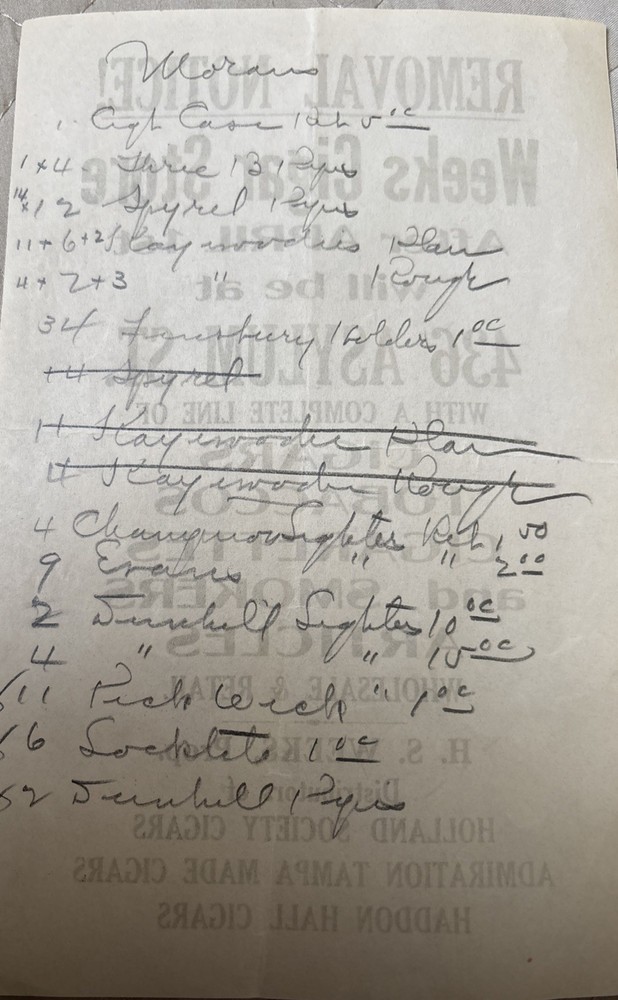 Morans
1 Cigt Case Ret 5 00
1+4 Three B Pipes
14 x12 Spyrel Pipes
11+6+2 Kaywoodies Plain
4+2+3 " Rough
34 Holders 1 00
14 Spyrel
11 Kaywoodie Plain
4 Kaywoodie Rough
4 Champion Lighter Ret 1 50
9 Evans " " 2 00
2 Dunhill Lighter 10 00
4 " " 15 00
11 Pick Wick " 1 00
6 Locktite 1 00
52 Dunhill Pipes
REMOVAL NOTICE!
Weeks Cigar Store
After APRIL 1st
will be at
436 ASYLUM ST.
WITH A COMPLETE LINE OF
CIGARS
TOBACCOS
CIGARETTES
and SMOKERS
ARTICLES
WHOLESALE & RETAIL
H. S. WEEKS, Prop.
Distributor of
HOLLAND SOCIETY CIGARS
ADMIRATION TAMPA MADE CIGARS
HADDON HALL CIGARS